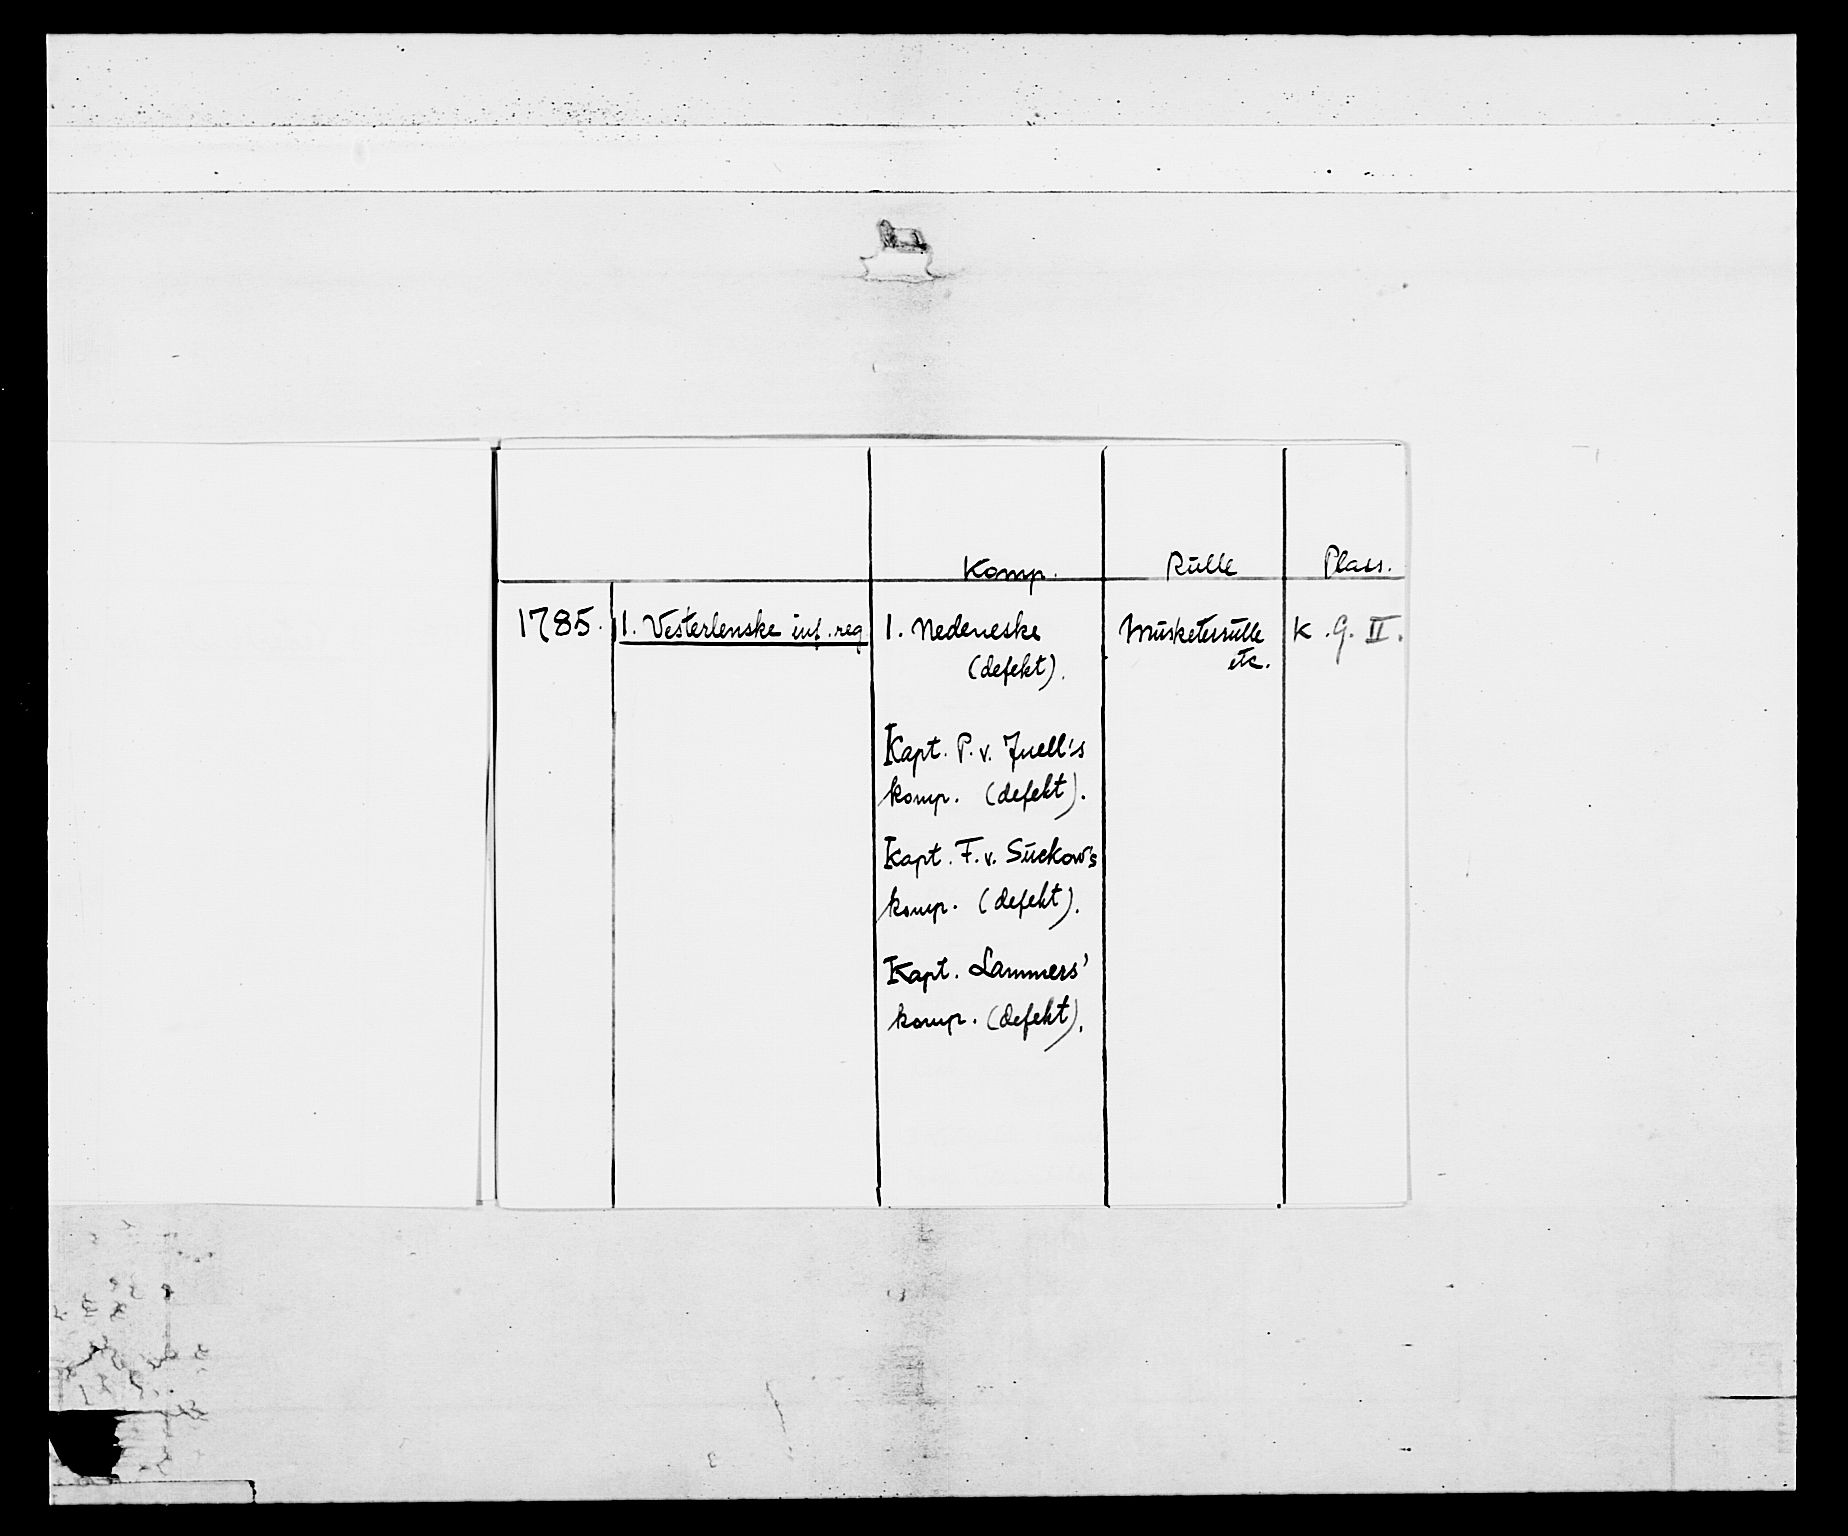 Komp. Rulle Plass.
1785. 1. Vesterlenske inf. reg. 1. Nedeneske Musketerrulle K. G. II.
(defekt). etc.
Kapt. P. v. Juell's
komp. (defekt).
Kapt. F. v. Suckow's
komp. (defekt).
Kapt. Lammers'
komp. (defekt).